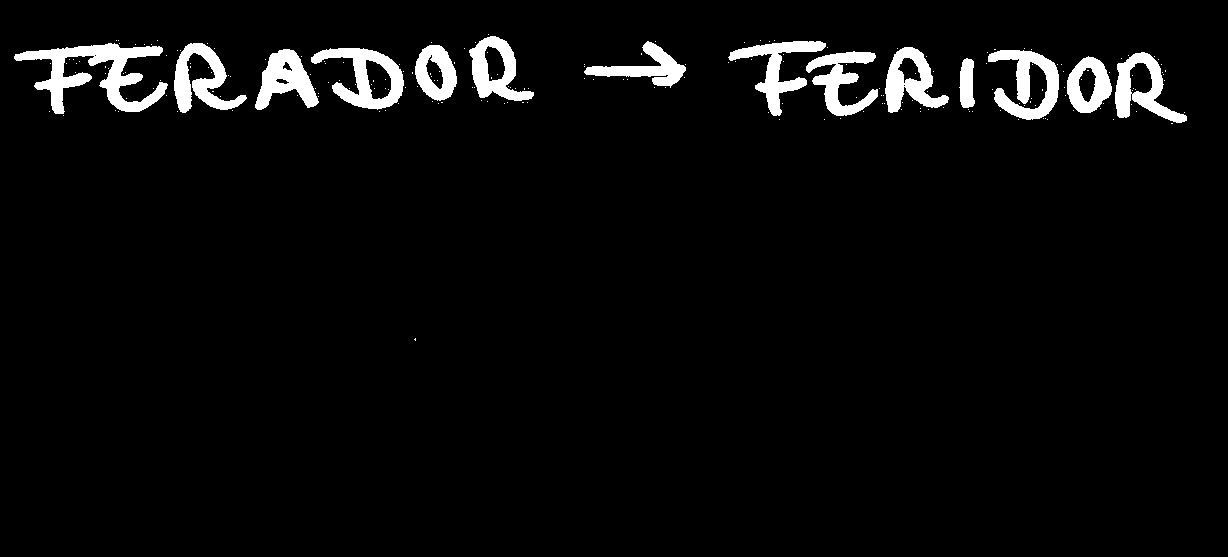 FERADOR → FERIDOR